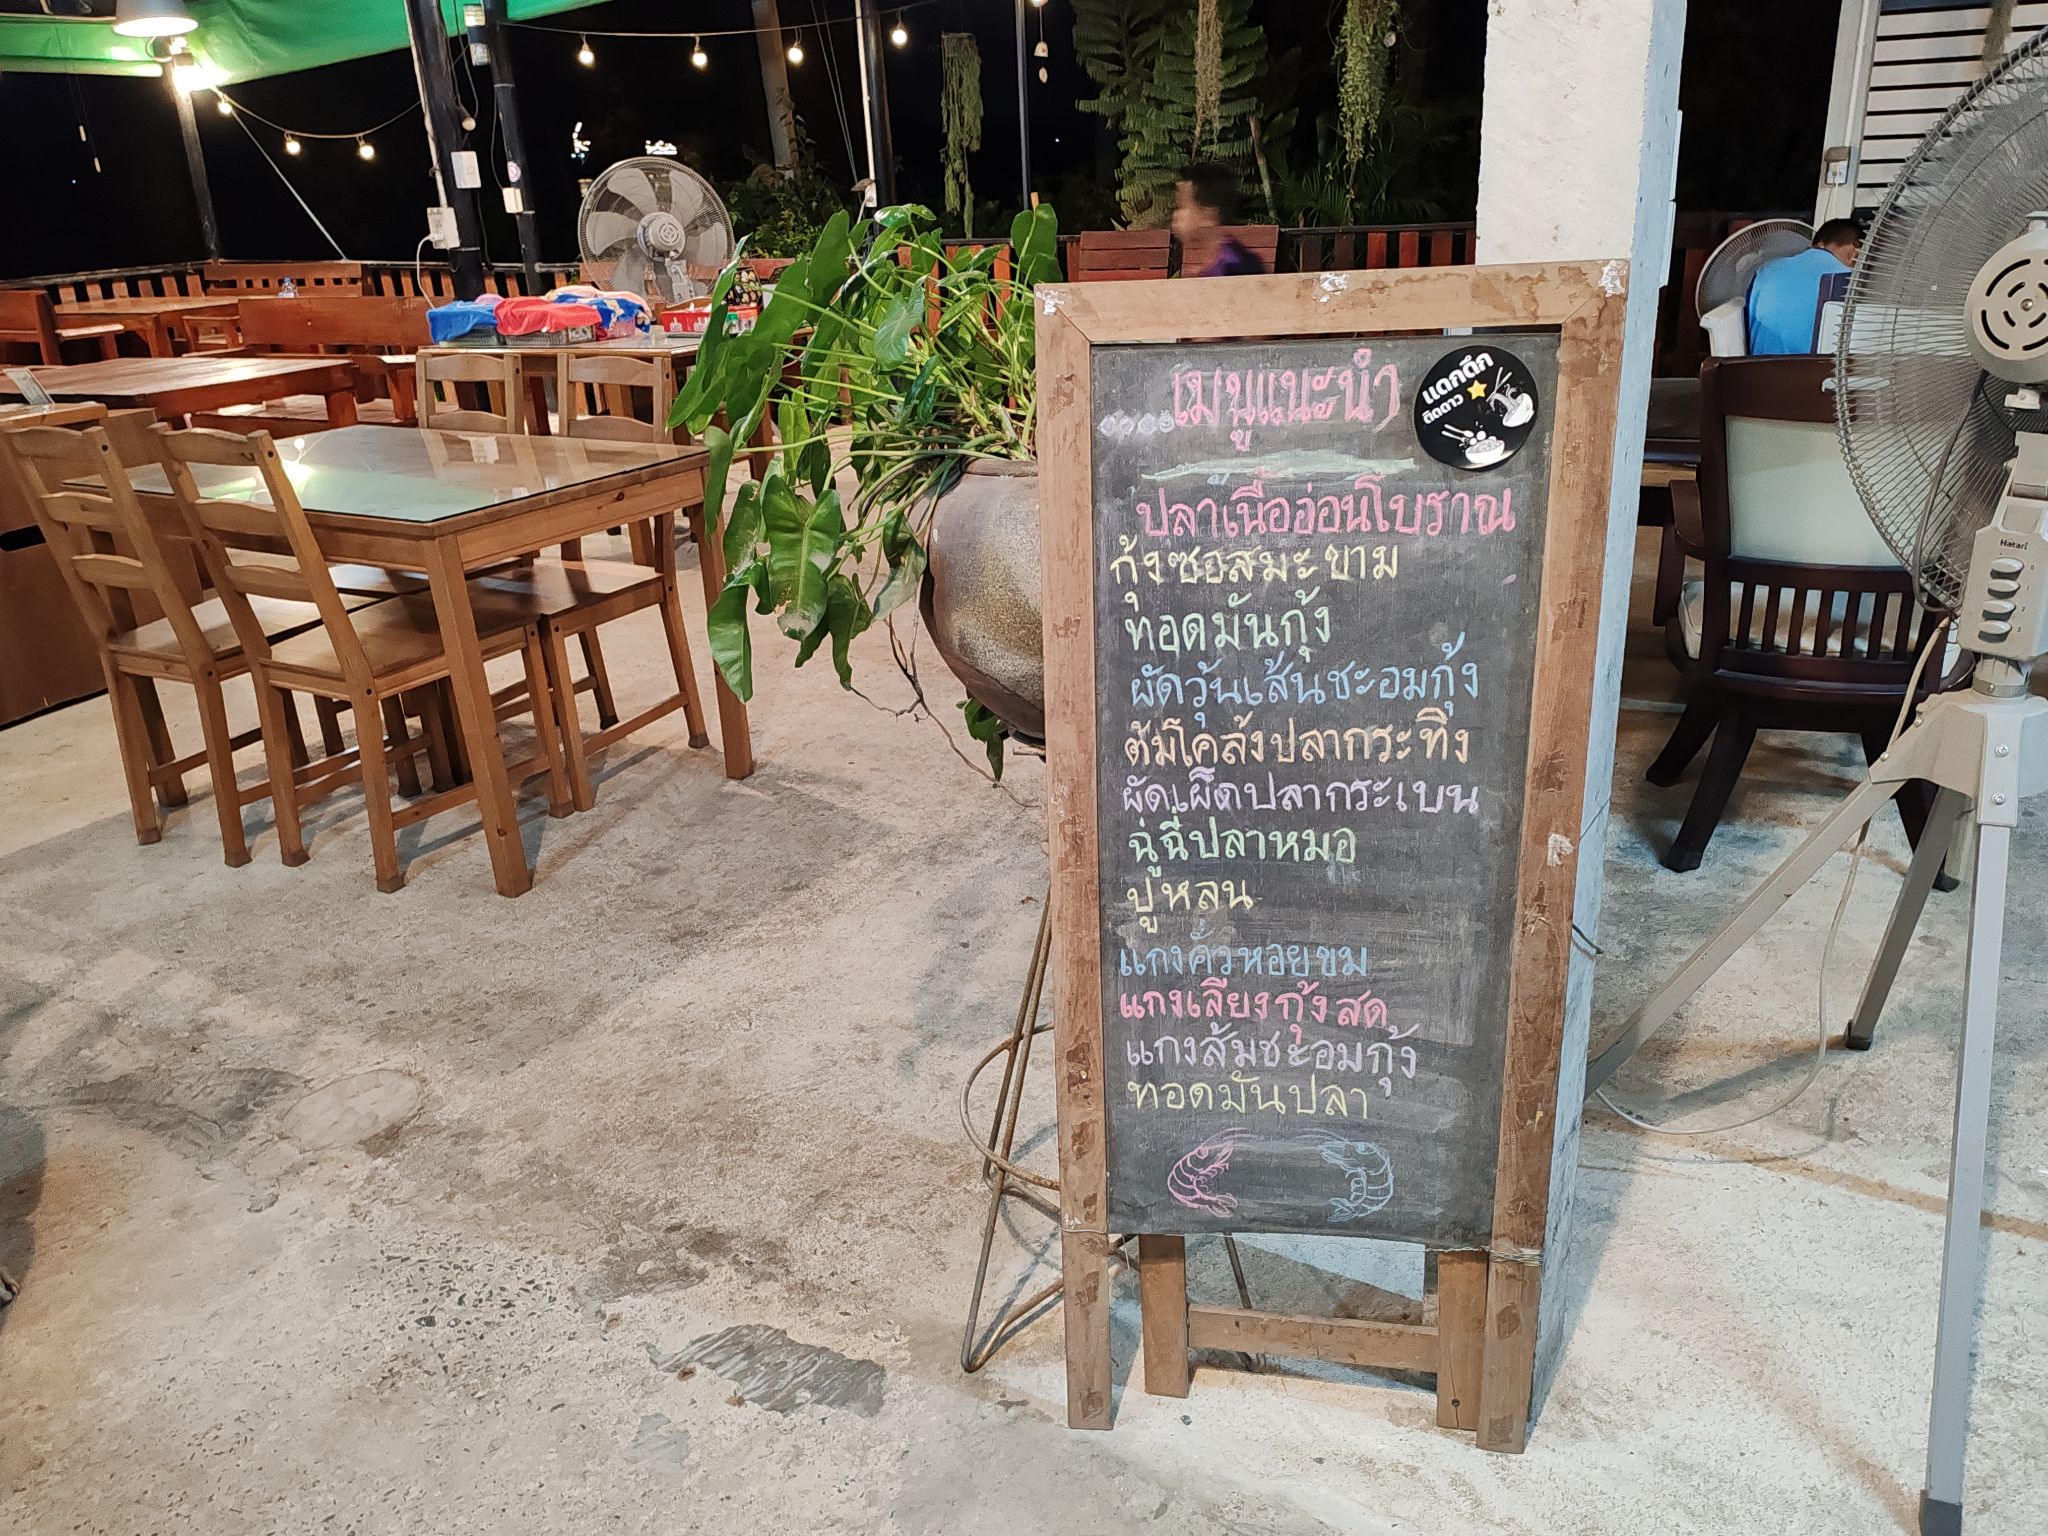 เมนูแนะนำ
แดกดึก
ติดดาว
ปลาเนื้ออ่อนโบราณ
กุ้งซอสมะขาม
ทอดมันกุ้ง
ผัดวุ้นเส้นชะอมกุ้ง
ต้มโคล้งปลากระทิง
ผัดเผ็ดปลากระเบน
ฉู่ฉี่ปลาหมอ
ปูหลน
แกงคั่วหอยขม
แกงเลียงกุ้งสด
แกงส้มชะอมกุ้ง
ทอดมันปลา
Hatari